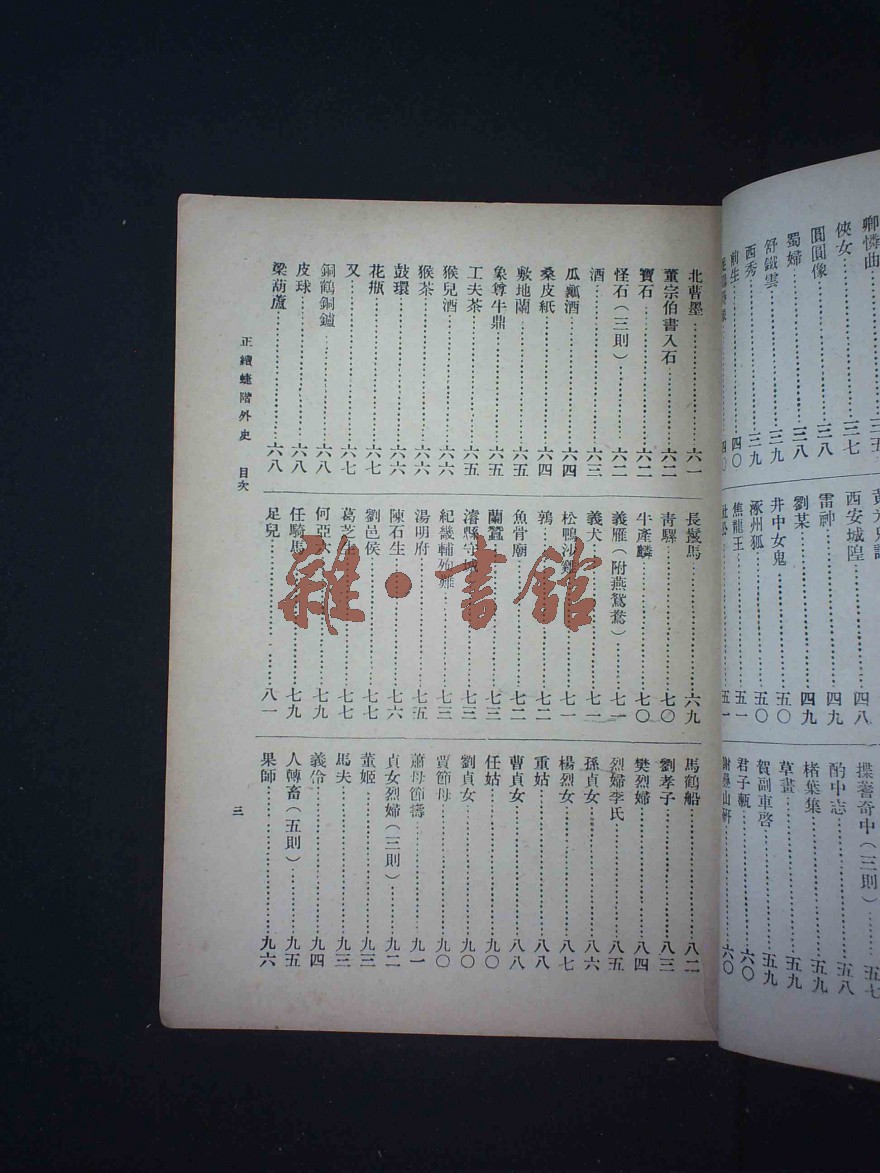 卿憐曲……三五
俠女……三七
圓圓像……三八
蜀婦……三八
舒鐵雲……三九
西秀……三九
荊生……四〇
西安城隍……四八
雷神……四九
劉某……四九
井中女鬼……五〇
涿州狐……五〇
焦龍王……五一
揲蓍奇中（三則）……五七
酌中志……五八
楮葉集……五九
草畫……五九
賀副車啓……五九
君子甎……六〇
北曹墨……六一
董宗伯書入石……六二
寶石……六二
怪石（三則）……六二
酒……六三
瓜瓤酒……六四
桑皮紙……六四
敷地蘭……六五
象尊牛鼎……六五
工夫茶……六五
猴兒酒……六六
猴茶……六六
鼓環……六六
花瓶……六七
又……六七
銅鶴銅鑪……六八
皮球……六八
梁葫蘆……六八
長鬛馬……六九
青騾……七〇
牛產麟……七〇
義雁（附燕鴛鴦）……七一
義犬……七一
松鴨沙雞……七一
鶉……七二
魚骨廟……七二
蘭蠶……七三
濬縣守城……七三
紀畿輔殉難……七三
湯明府……七五
陳石生……七六
劉邑侯……七七
葛芝生……七七
何亞六……七九
任騎馬……七九
足兒……八一
馬鶴船……八二
劉孝子……八三
樊烈婦……八四
烈婦李氏……八五
孫貞女……八六
楊烈女……八七
重姑……八八
曹貞女……八八
任姑……九〇
劉貞女……九〇
賈節母……九〇
蕭母節壽……九一
貞女烈婦（三則）……九二
董姬……九三
馬夫……九三
義伶……九四
人轉畜（五則）……九五
果師……九六
正續蜨階外史　目次
三
雜·書館